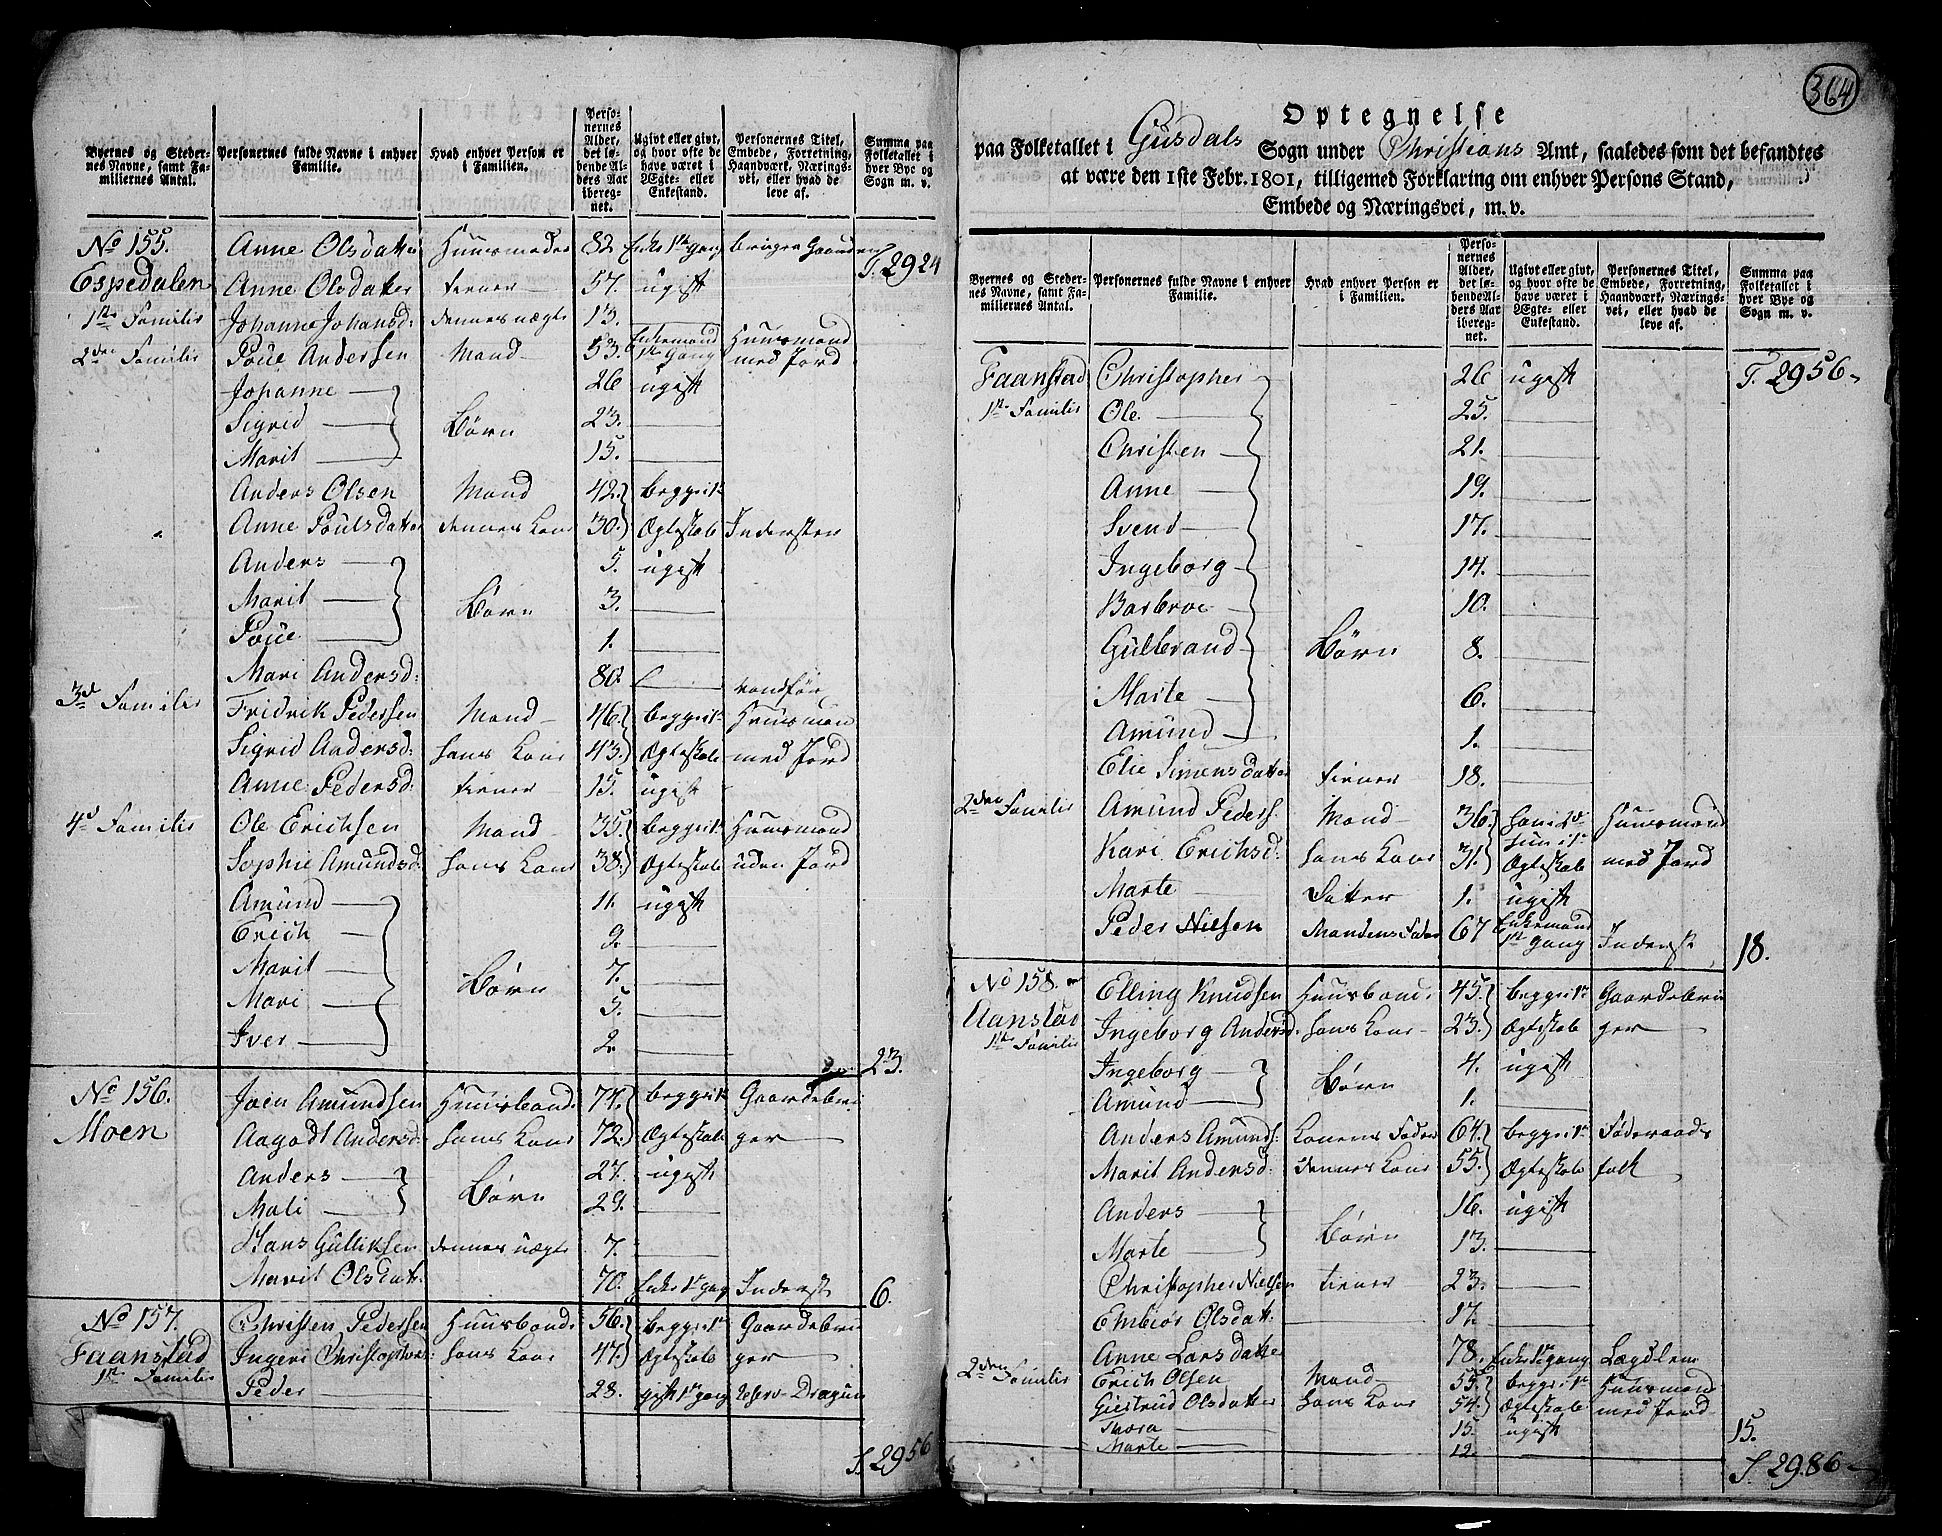 364
Byernes og Stedernes Navne, samt Familiernes Antal.
Personernes fulde Navne i enhver Familie.
Hvad enhver Person er i Familien.
Personernes Alder, det løbende Alders Aar iberegnet.
Ugivt eller givt, og hvor ofte de have været i Ægte- eller Enkestand.
Personernes Titel, Embede, Forretning, Haandværk, Næringsvei, eller hvad de leve af.
Summa paa Folketallet i hver Bye og Sogn m. v.
T. 2924
No 155. Anne Olsdatter Huusmoder 82 Enke 1te gang
Espedalen Anne Olsdatter tiener 57. ugift
1te Familie Johanne Johansd: dennes 13. —
2den Familie Poue Andersen Mand 53. Enkemand 1te Gang Huusmand med Jord
Johanne — 26 ugift
Sigrid — Børn 23. —
Marit — 15. —
Anders Olsen Mand 42. begge 1te
Anne Poulsdatter dennes Kone 30. Ægteskab Inderster
Anders — 5. ugift
Marit — Børn 3. —
Poue — 1. —
Mari Andersd: 80. — vanfør
3de Familie Fridrik Pedersen Mand — 46. begge 1te Huusmand
Sigrid Andersd: hans Kone 43. Ægteskab med Jord
Anne Pedersd: tiener 15. ugift
4de Familie Ole Erichsen Mand — 35. begge 1te Huusmand
Sophie Amundsd: hans Kone 38. Ægteskab uden Jord
Amund — 11. ugift
Erich — 9. —
Marit — Børn 7. —
Mari — 5. —
Iver — 2. —
23.
No 156. Joen Amundsen Huusbonde 74. begge 1te Gaardebru
Moen Aagodt Andersd: hans Kone 72. Ægteskab ger —
Anders — Børn 27. ugift
Mali — 29. —
Hans Gulliksen dennes 7. —
Marit Olsdat: 70. Enke 1te gang Inderst
6.
No 157. Christen Pedersen Huusbonde 56. begge 1te Gaardebru
Faanstad Ingeri Christophers: hans Kone 47. Ægteskab ger —
1te Familie Peder — 28. gift 1te gang Reserv Dragun
S. 2956
Optegnelse
paa Folketallet i Gusdals Sogn under Christians Amt, saaledes som det befandtes
at være den 1ste Febr. 1801, tilligemed Forklaring om enhver Persons Stand,
Embede og Næringsvei, m. v.
Byernes og Stedernes Navne, samt Familiernes Antal.
Personernes fulde Navne i enhver Familie.
Hvad enhver Person er i Familien.
Personernes Alder, det løbende Alders Aar iberegnet.
Ugivt eller givt, og hvor ofte de have været i Ægte- eller Enkestand.
Personernes Titel, Embede, Forretning, Haandværk, Næringsvei, eller hvad de leve af.
Summa paa Folketallet i hver Bye og Sogn m. v.
Faanstad Christopher 26 ugift T. 2956
1te Familie Ole — 25. —
Christen — 21. —
Anne — 19. —
Svend — 17. —
Ingeborg — 14. —
Barbroe — 10. —
Gulbrand — Børn 8. —
Marte — 6. —
Amund — 1. —
Elie Simensdatter tiener 18. —
2den Familie Amund Peders: Mand — 36. Huusmand
Kari Erichsd: hans Kone 31. Ægteskab med Jord
Marte — Datter 1. ugift
Peder Nielsen Mandens Fader 67 Enkemand 1te Gang Inderst
18.
No 158. Elling Knudsen Huusbonde 45. begge 1te Gaardebru
Aanstad Ingeborg Andersd: hans Kone 23. Ægteskab ger —
1te Familie Ingeborg — 4. ugift
Amund — Børn 1. —
Anders Amunds: Konens Fader 64. begge 1te Føderaads
Marit Andersd: dennes Kone 55. Ægteskab folk
Anders — 16. ugift
Marte — Børn 13. —
Christopher Nielsen tiener 23. —
Embiør Olsdatt: 17. —
Anne Larsdatter 78. Enke 1te gang Lægdlem
2den Familie Erich Olsen Mand — 55. begge 1te Huusmand
Giertrud Olsdatter hans Kone 54. Ægteskab med Jord
Thora — 15. ugift
Marte — 12. —
15.
S. 2986